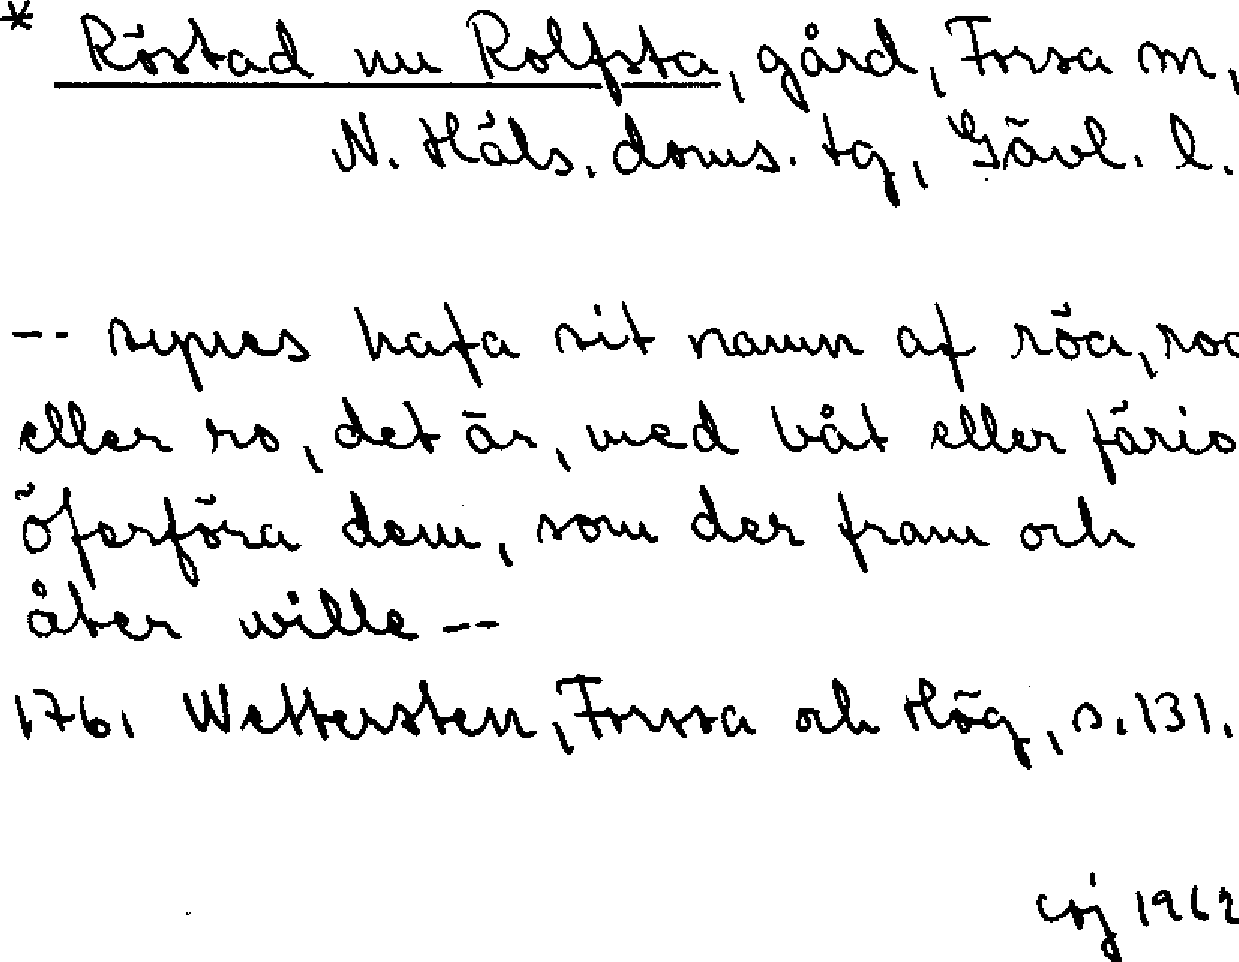 * Röstad nu Rolfsta, gård, Forsa sn,
N. Häls. doms. tg, Gävl. l.
-- synes hafa sit namn af röa, roa
eller ro, det är, med båt eller färio
öferföra dem, som der fram och
åter wille --
1761 Wettersten, Forssa och Hög, s. 131.
1962